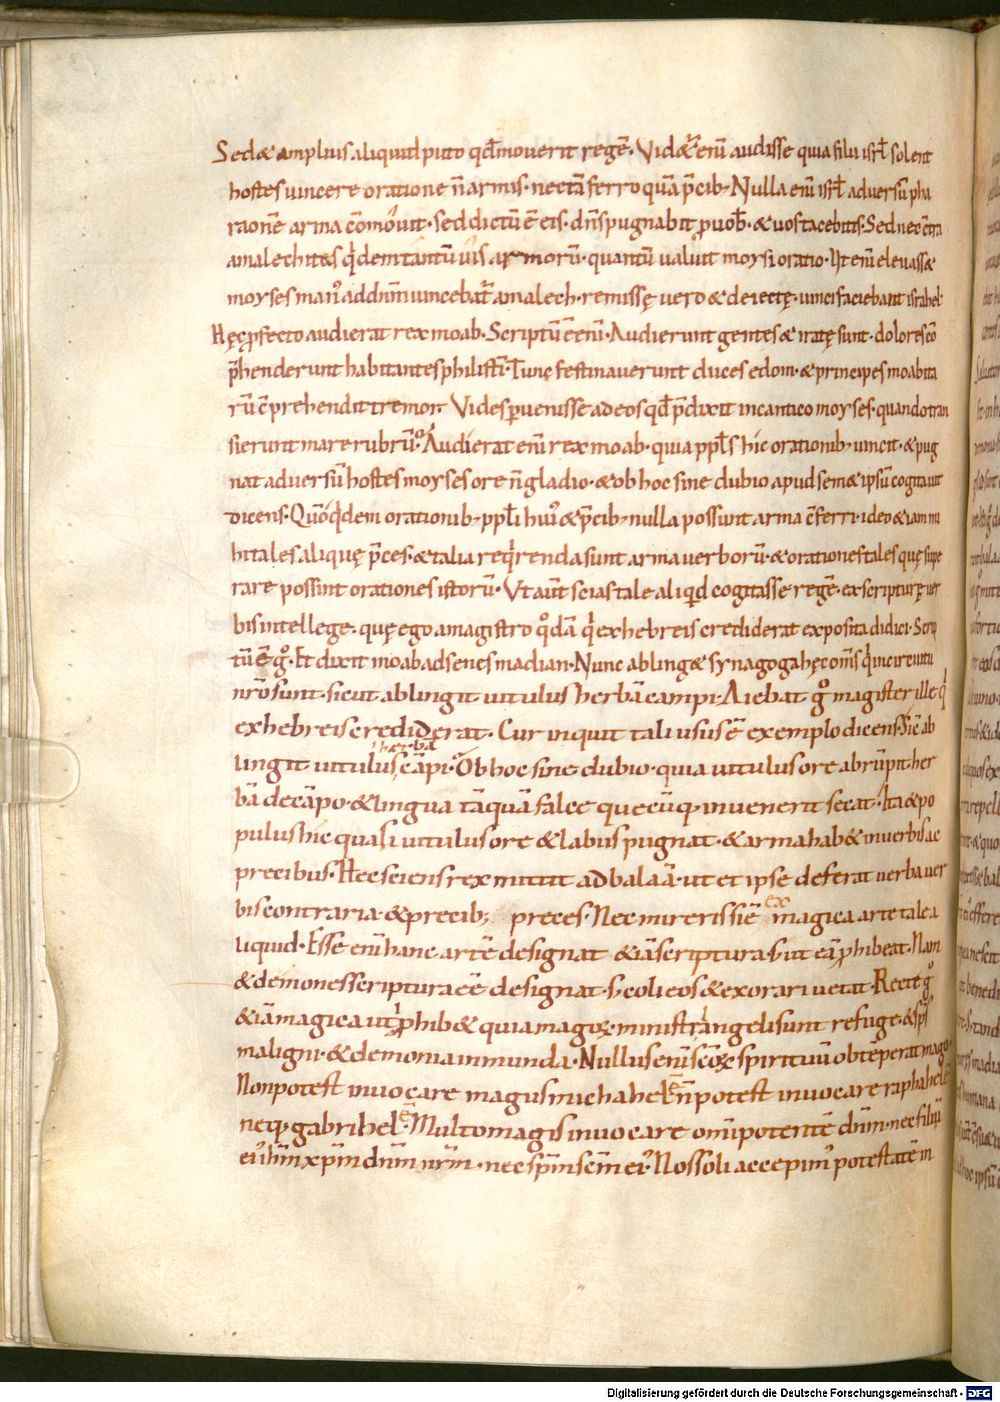 Sed & amplius aliquid puto qd̄ moverit regē. Vidᷣ& enī audisse quia filii isrł solent
hostes vincere oratione n̄ armis. nec tā ferro quā p̄cib; Nulla enī isrł adversū pha
raonē arma cōmovit. sed dictū ē eis. dn̄s pugnabit p vob̄. & vos tacebitis. Sed nec cͨtra
amalechitas qͥdem tantū vis armorū. quantū valuit moysi oratio. Ut enī elevass&
moyses manꝰ ad dn̄m vincebatᷣ amalech. remissę vero & deiectę. vinci faciebant israhel.
Hęc pfecto audierat rex moab. Scriptū ē enī. Audierunt gentes & iratę sunt. dolores cō
p̄henderunt habitantes philistī. Tunc festinaverunt duces edom. & principes moabita
rū cͨprehendit tremor. Vides pvenisse ad eos qd̄ p̄dixit in cantico moyses. quando tran
sierunt mare rubrū. Audierat enī rex moab. quia pplś hic orationib; vincit. & pug
nat adversū hostes moyses ore n̄ gladio. & ob hoc sine dubio apud sem& ipsū cogitavit
dicens. Quō qͥdem orationib; ppłi huiꝰ & p̄cib; nulla possunt arma cͨferri. ideo & iam mi
hi tales aliquę p̄ces. & talia reqͥrenda sunt arma verborū. & orationes tales quę supe
rare possint orationes istorū. Ut aūt scias tale aliqͥd cogitasse regē. ex scripturę ver
bis intellege. quę ego a magistro qͦdā qͥ ex hebreis crediderat exposita didici. Scrip
tū ē gͦ. Et dixit moab ad senes madian. Nunc abling& synagoga hęc om̄s qͥ in circuitu
nr̄o sunt. sicut ablingit vitulus herbā campi. Aiebat gͦ magister ille qͥ
ex hebreis crediderat. Cur inquit tali usus ē exemplo dicens. Sic̄ ab
lingit vitulus herbā cāpi. Ob hoc sine dubio. quia vitulus ore abrūpit her
bā de cāpo. & lingua tāquā falce quecūq; invenerit secat. Ita & po
pulus hic quasi vitulus ore & labiis pugnat. & arma hab& in verbis ac
precibus. Hec sciens rex mittit ad balaā. ut et ipse deferat verba ver
bis contraria. & precib; preces. Nec mireris siē ex magica arte tale a
liquid. Esse enī hanc artē designat &iā scriptura. s; ut eā phibeat. Nam
& demones scriptura eē designat. s; coli eos & exorari vetat. Recte gͦ
&iā magica uti phib& quia magoꝝ. ministri angeli sunt refuge. & spš
maligni. & demonia inmunda. Nullus enī scōꝝ spirituū obtēperat mago.
Non potest invocare magus michahelē n̄ potest invocare raphahelē
neq; gabrihelē. Multo magis invocare omīpotentē dm̄. nec filiū
eiꝰ ihm̄ xpm̄ dnm̄ nrm̄. nec spm̄ scm̄ eiꝰ. Nos soli accepimꝰ potestatē in
Digitalisierung gefördert durch die Deutsche Forschungsgemeinschaft - DFG